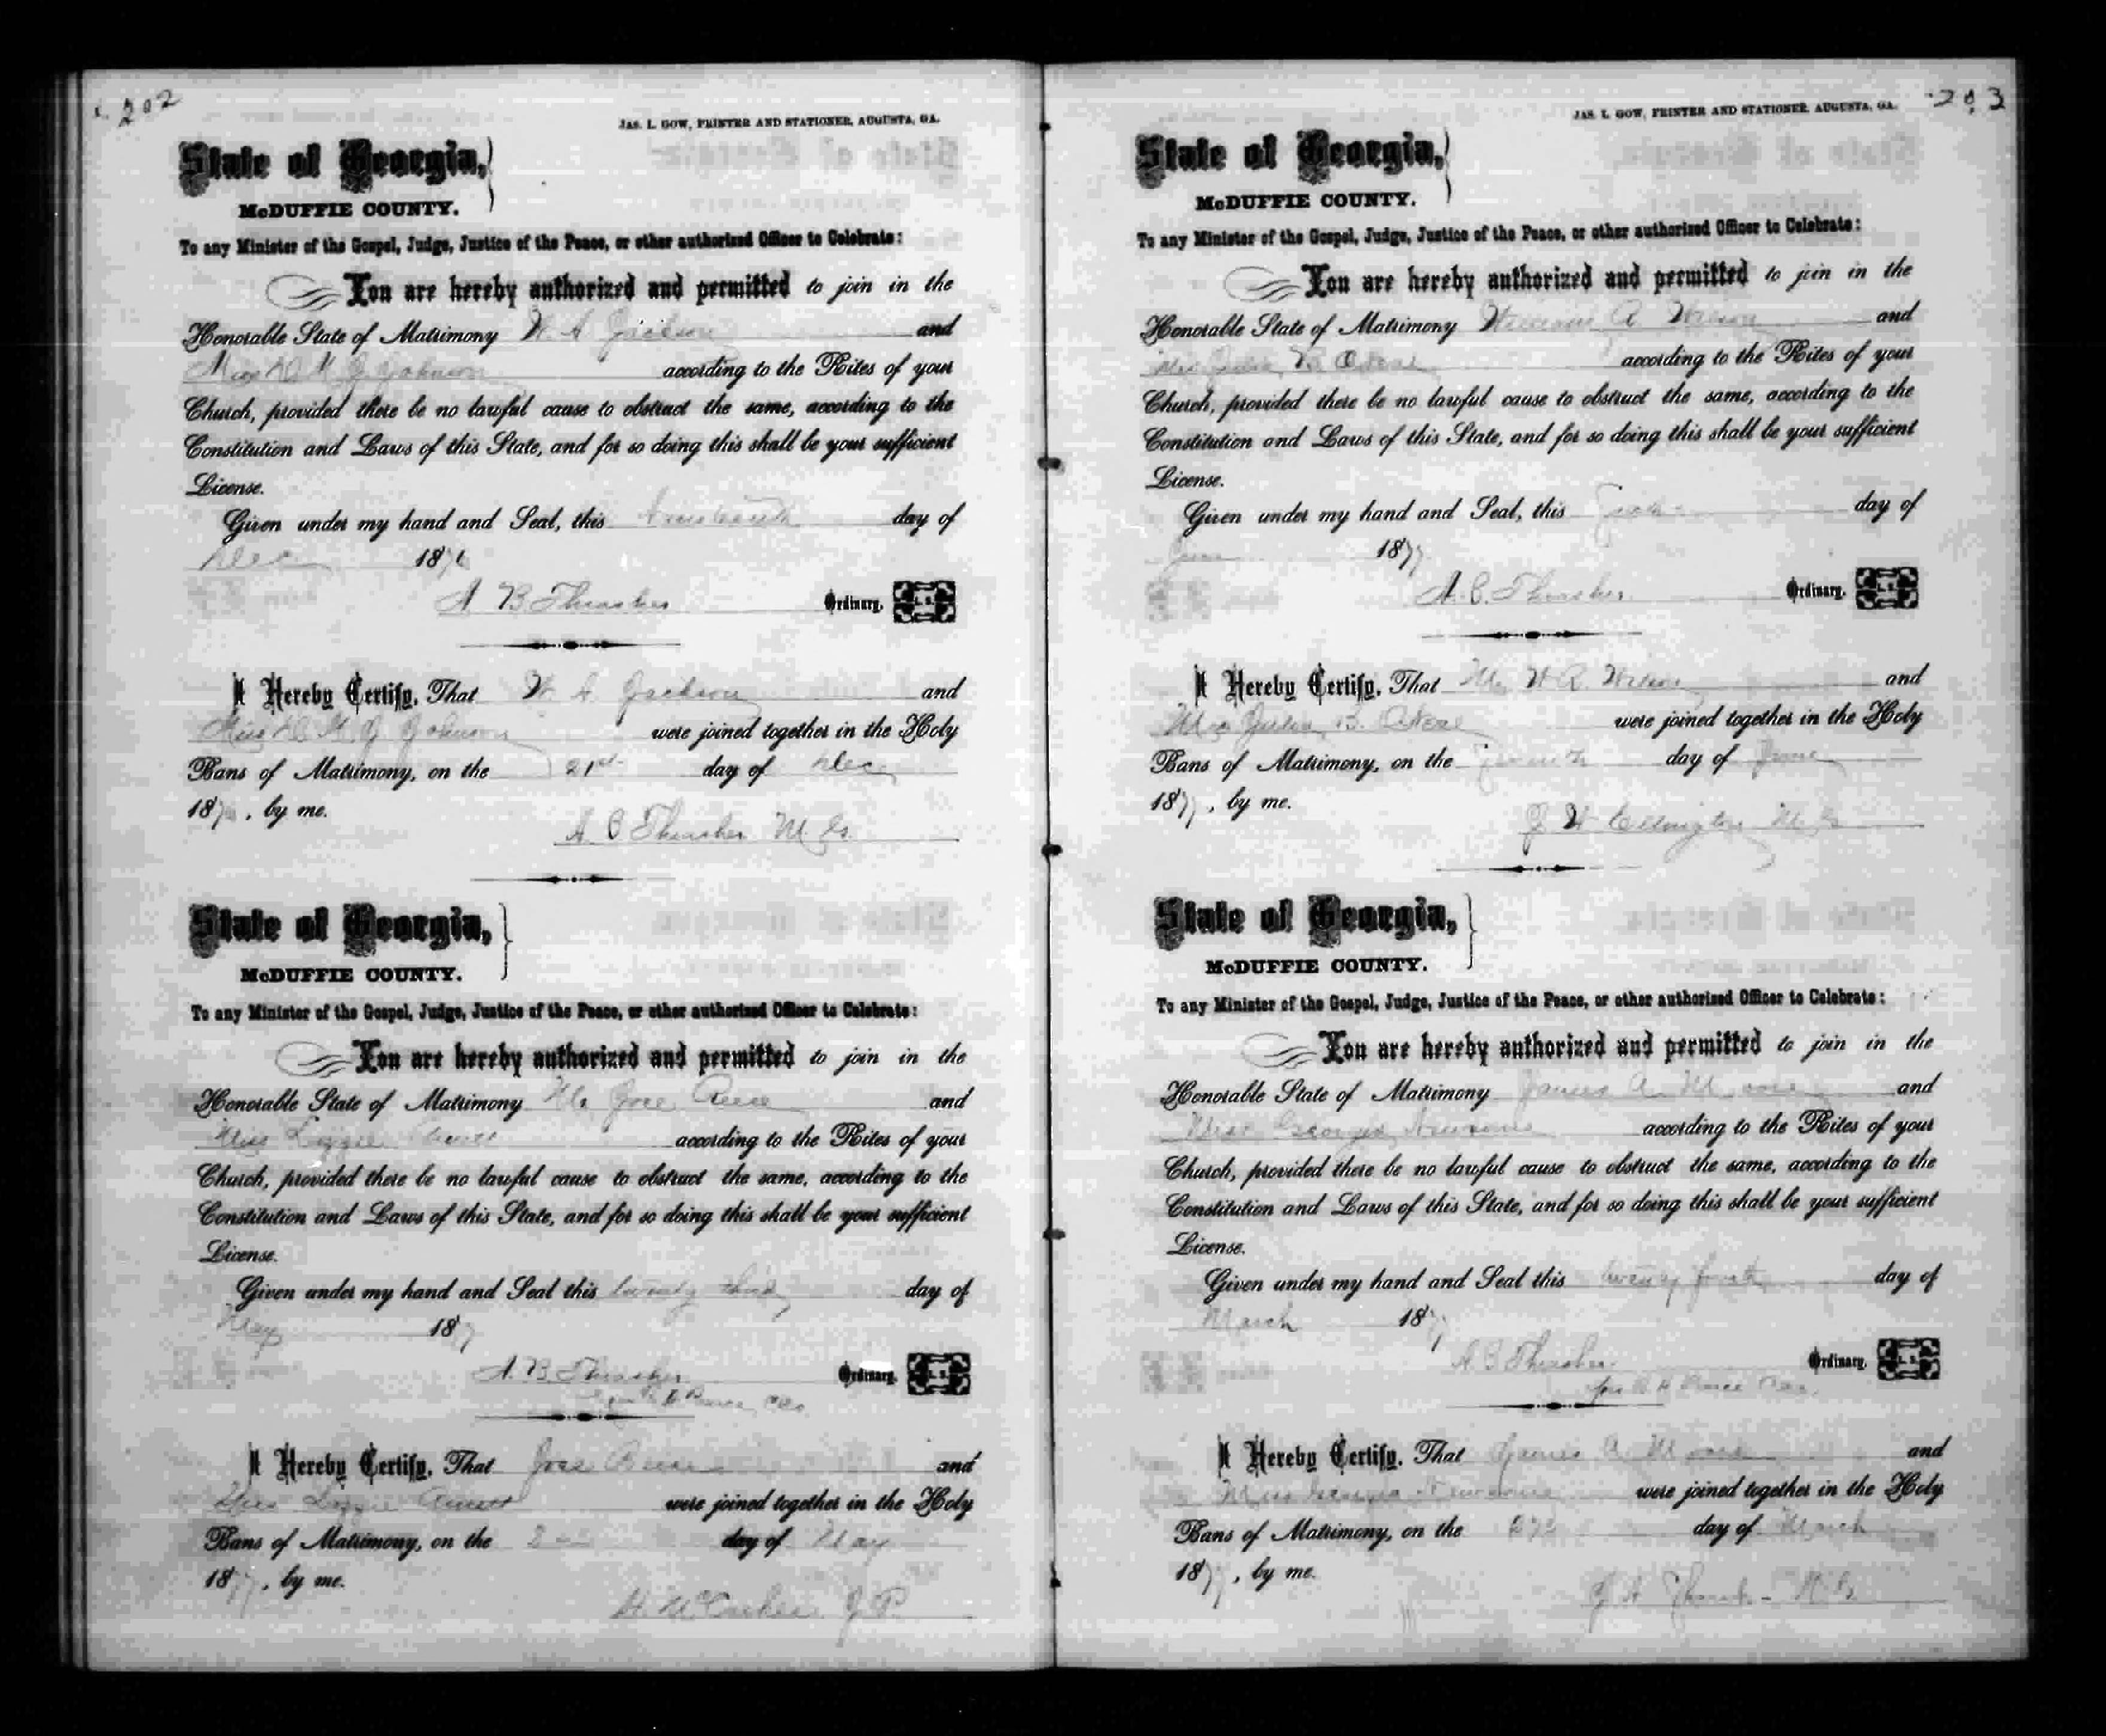 202
JAS. L. GOW, PRINTER AND STATIONER, AUGUSTA, GA.
State of Georgia,
McDUFFIE COUNTY.
To any Minister of the Gospel, Judge, Justice of the Peace, or other authorized Officer to Celebrate:
You are hereby authorized and permitted to join in the
Honorable State of Matrimony W. A Jackson and
Miss M J Johnson according to the Rites of your
Church, provided there be no lawful cause to obstruct the same, according to the
Constitution and Laws of this State, and for so doing this shall be your sufficient
License.
Given under my hand and Seal, this day of
Dec 1876
A B Thrasher Ordinary. L. S.
I Hereby Certify, That W. A. Jackson and
Miss M. J. Johnson were joined together in the Holy
Bans of Matrimony, on the 21st day of Dec
187 , by me.
A. C Thrasher M. G.
State of Georgia,
McDUFFIE COUNTY.
To any Minister of the Gospel, Judge, Justice of the Peace, or other authorized Officer to Celebrate:
You are hereby authorized and permitted to join in the
Honorable State of Matrimony Mr Jose and
Miss Lizzie according to the Rites of your
Church, provided there be no lawful cause to obstruct the same, according to the
Constitution and Laws of this State, and for so doing this shall be your sufficient
License.
Given under my hand and Seal this twenty third day of
May 187
A. B. Thrasher Ordinary. L. S.
I Hereby Certify, That Jose and
Miss Lizzie were joined together in the Holy
Bans of Matrimony, on the day of May
187 , by me.
J. P.
203
JAS. L. GOW, PRINTER AND STATIONER, AUGUSTA, GA.
State of Georgia,
McDUFFIE COUNTY.
To any Minister of the Gospel, Judge, Justice of the Peace, or other authorized Officer to Celebrate:
You are hereby authorized and permitted to join in the
Honorable State of Matrimony William A Wilson and
Mrs Julia B ONeal according to the Rites of your
Church, provided there be no lawful cause to obstruct the same, according to the
Constitution and Laws of this State, and for so doing this shall be your sufficient
License.
Given under my hand and Seal, this day of
June 1877
A. B. Thrasher Ordinary. L. S.
I Hereby Certify, That Mr W A. Wilson and
Mrs Julia B. ONeal were joined together in the Holy
Bans of Matrimony, on the day of June
1877, by me.
J H Ellington M G
State of Georgia,
McDUFFIE COUNTY.
To any Minister of the Gospel, Judge, Justice of the Peace, or other authorized Officer to Celebrate:
You are hereby authorized and permitted to join in the
Honorable State of Matrimony James A Moore and
Miss Georgia according to the Rites of your
Church, provided there be no lawful cause to obstruct the same, according to the
Constitution and Laws of this State, and for so doing this shall be your sufficient
License.
Given under my hand and Seal this twenty fourth day of
March 1877
A B Thrasher Ordinary. L. S.
I Hereby Certify, That James A Moore and
Miss Georgia were joined together in the Holy
Bans of Matrimony, on the day of March
1877, by me.
M. G.